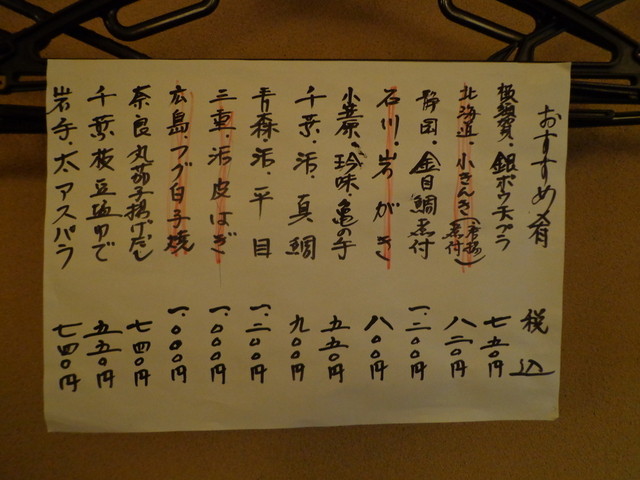 おすすめ肴 税込
横須賀、銀ポウ天プラ 七五〇円
北海道、小きんき(唐揚 煮付) 八二〇円
静岡、金目鯛煮付 一、二〇〇円
石川、岩がき 八〇〇円
小笠原、珍味、亀の手 五五〇円
千葉、活、真鯛 九〇〇円
青森活、平目 一、二〇〇円
三重、活皮はぎ 一、〇〇〇円
広島、フグ白子焼 一、〇〇〇円
奈良丸茄子揚げだし 七四〇円
千葉、枝豆塩ゆで 五五〇円
岩手、太アスパラ 七四〇円